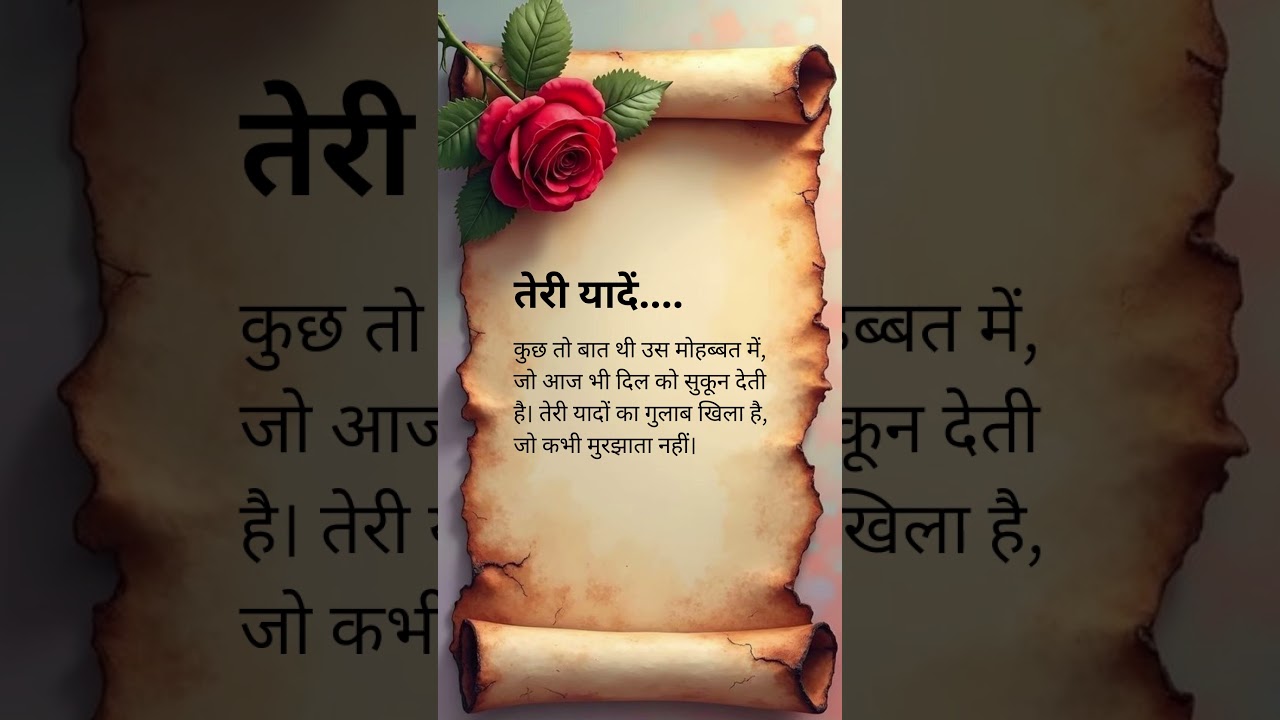 तेरी यादें....
कुछ तो बात थी उस मोहब्बत में,
जो आज भी दिल को सुकून देती
है। तेरी यादों का गुलाब खिला है,
जो कभी मुरझाता नहीं।